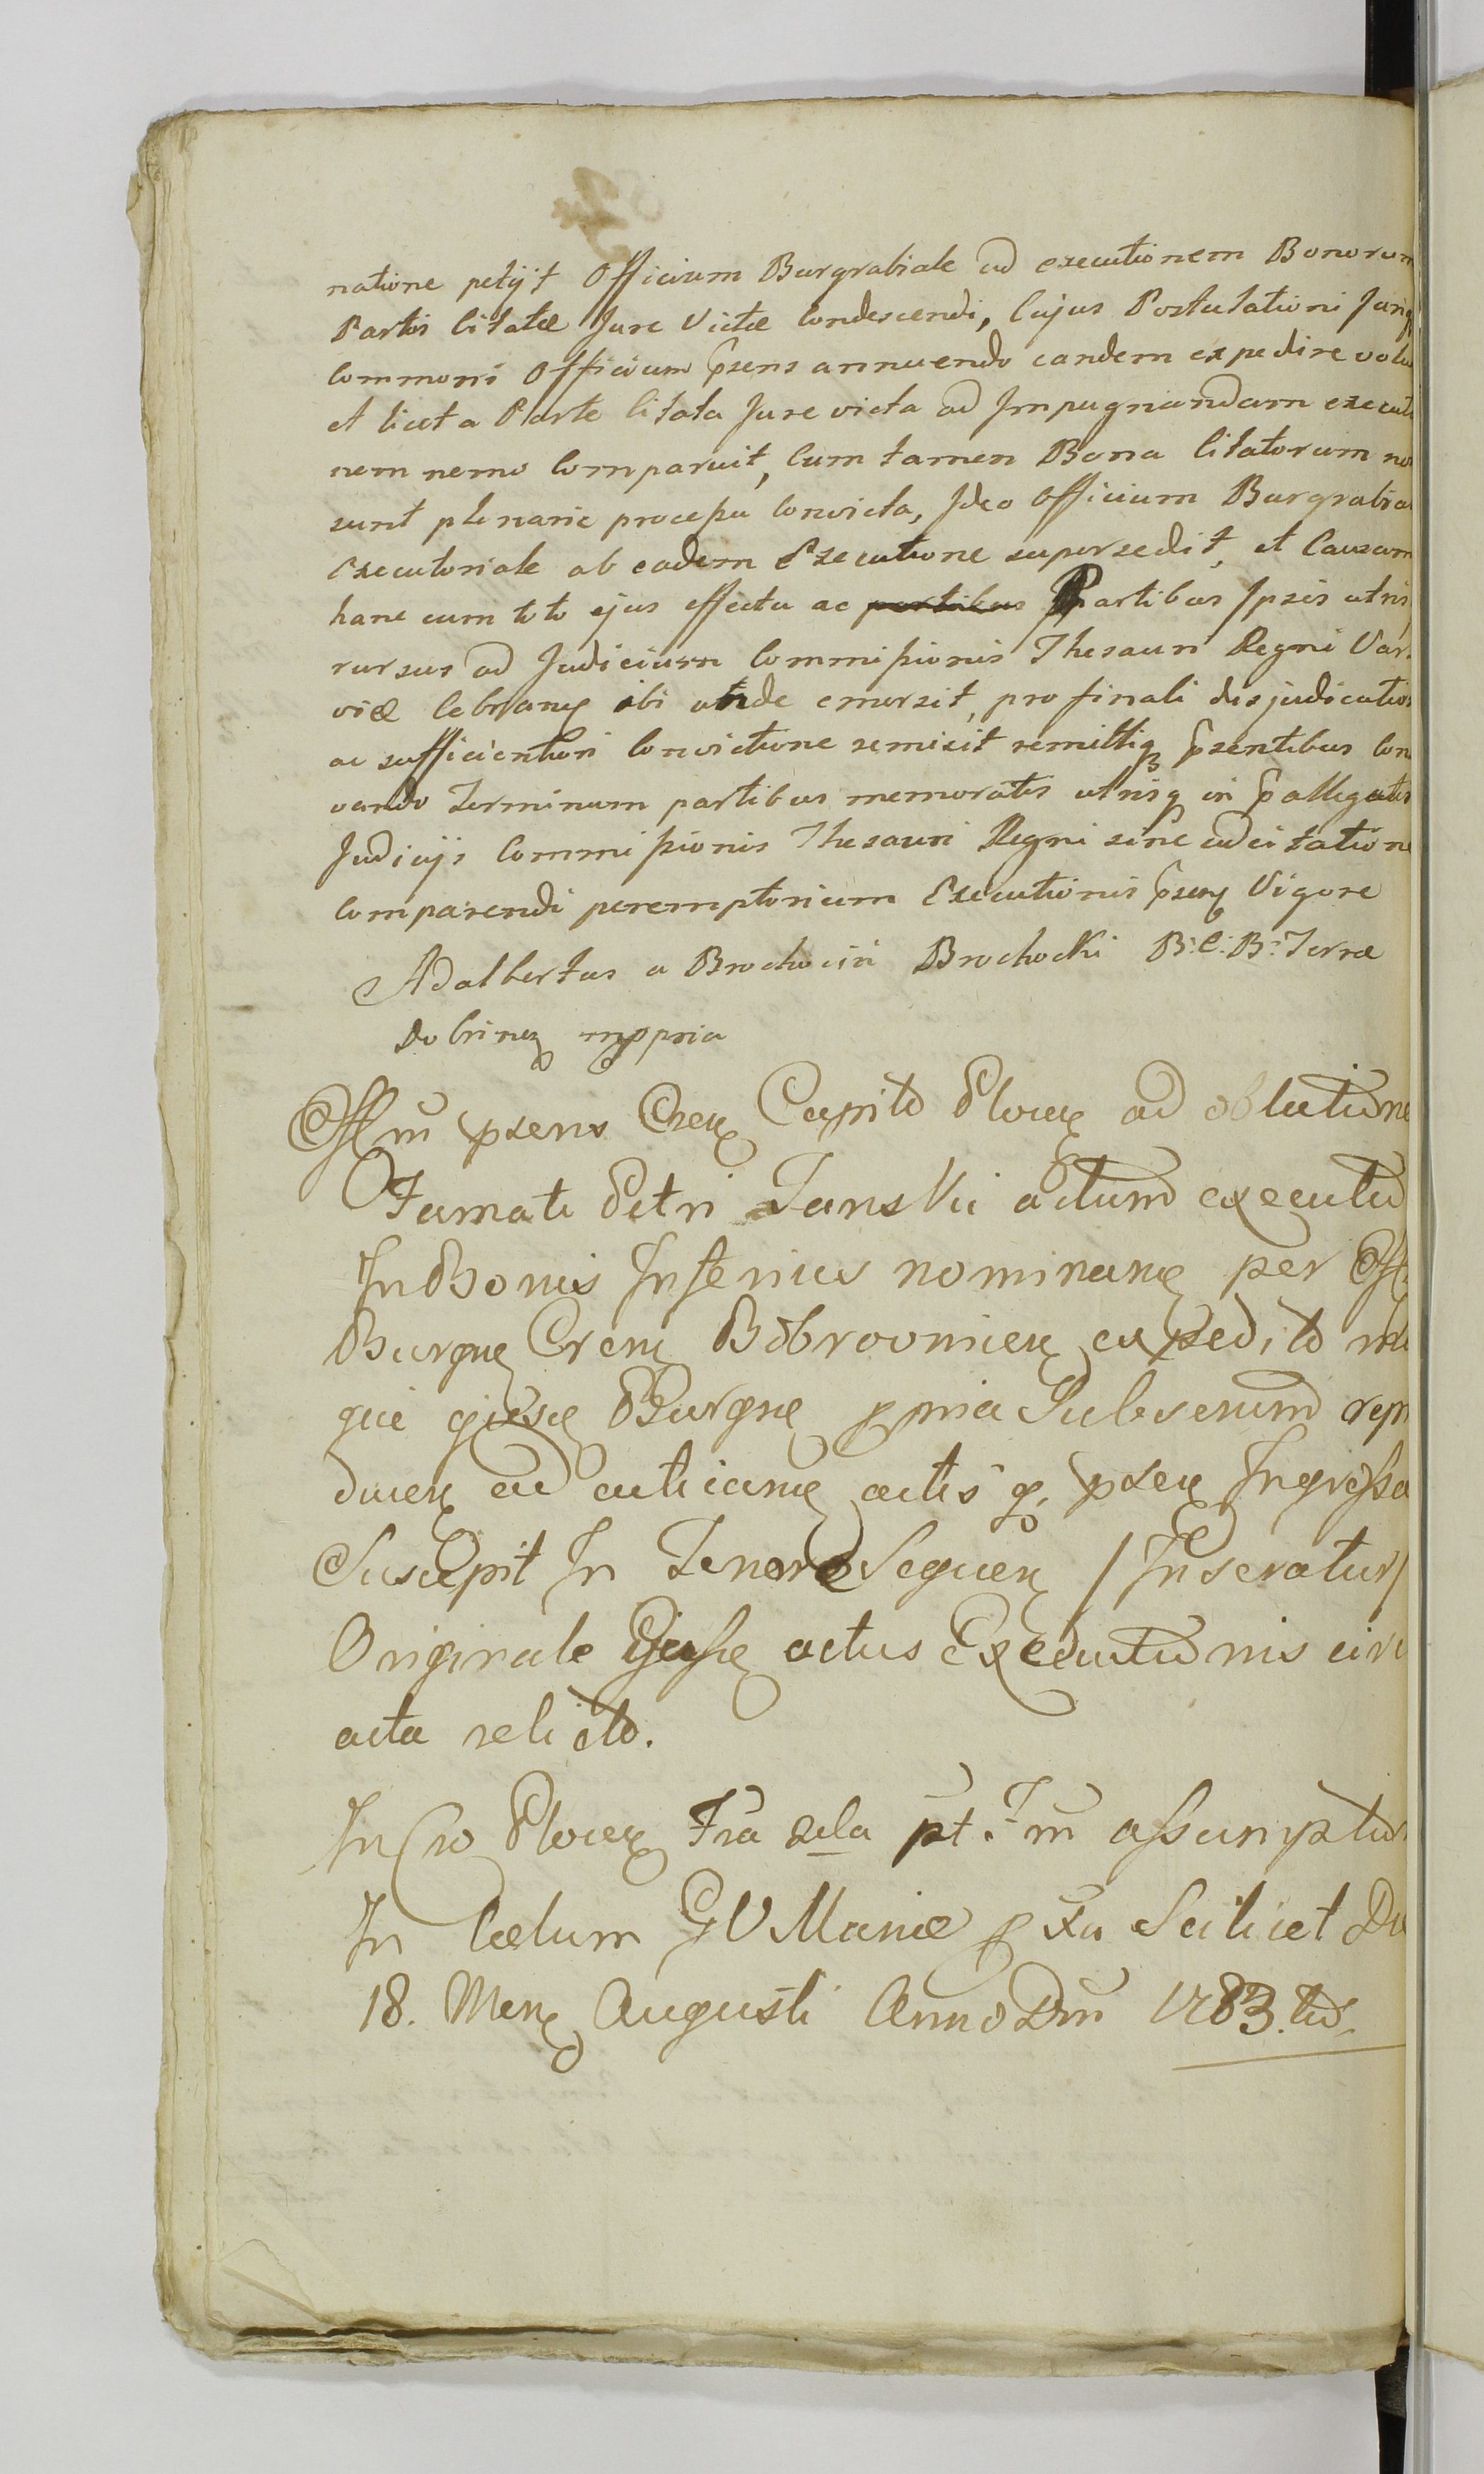 natione petijt Officium Burgrabiale ad executionem Bonorum
Partis Citatæ Jure Victæ Condescendi, Cujus Postulationi Juriq
Commoni Officium p̃sens annuendo eandem expedire volu
et licet a Parte Citata Jure victa ad Impugnandam executi
nem nemo Comparuit, Cum tamen Bona Citatorum no
sunt plenarie processu Convicta, Ideo Officium Burgrabia
Executoriale ab eadem Executione supersedit, et Causam
hanc cum toto ejus effectu ac partibus Partibus Ipsis utris
rursus ad Judicium Commissionis Thesauri Regni Var
viæ Celebran ibi unde emersit, pro finali disjudication
ac sufficientiori Convictione remisit remittiq p̃sentibus Con
vando Terminum partibus memoratis utrisq in p̃allegatis
Judicijs Commissionis Thesauri Regni sine adcitatione
Comparendi peremptorium Executionis p̃sen Vigore
Adalbertus a Brochocin Brochocki B: C: B: Terræ
Dobrinen mppria
Offm̃ p̃sens Cren Capit Plocen ad oblation
Famati Petri Janskii actum execution
In Bonis Inferius nominan per Off
Burgne Cren Bobrovnicen expedit
qui Burgne ppria Subscrum rep
ducen ad acticans actis q. p̃sen Ingrossa
Suscepit In Tenore Sequen / Inseratur /
Originale actus Executionis circ
acta relicto.
In Cro Plocen Fra 2da pt. Fm̃ assumptio
In Cælum GV Mariæ pxa Scilicet Di
18. Men Augusti Anno Dni 1783. tio